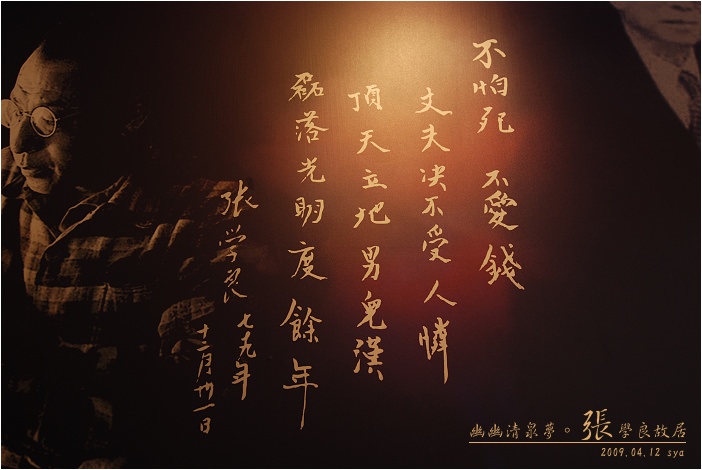 不怕死 不愛錢
丈夫決不受人憐
頂天立地男兒漢
磊落光明度餘年
張学良 七九年
十二月卅一日
幽幽清泉夢。張學良故居
2009,04,12 sya